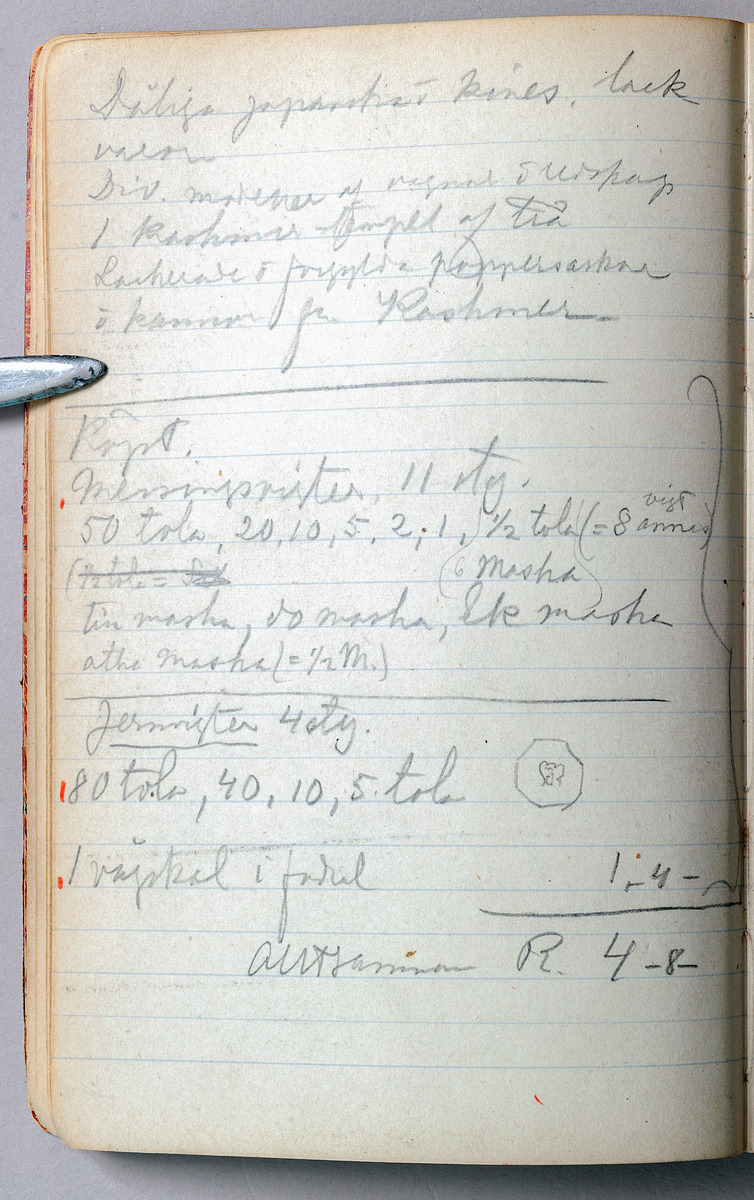 Dåliga japanska o kines. lack
varor
Div. modeller af vagnar o redskap
1 Kashmir-tempel af trä
Lackerade o förgylda pappersaskar
o kannor fr. Kashmir
Köpt.
Messingsvigter, 11 sty.
vigt
50 tola, 20, 10, 5, 2, 1, 1/2 tola (= 8 annas)
(1/2 tola =
(6 Masha)
tin masha, do masha, Ek masha
atha masha (= 1/2 M.)
Jernvigter 4 sty.
80 tola, 40, 10, 5 tola
1 vågskål i fodral 1 - 4 -
Alltsamman R. 4 - 8 -